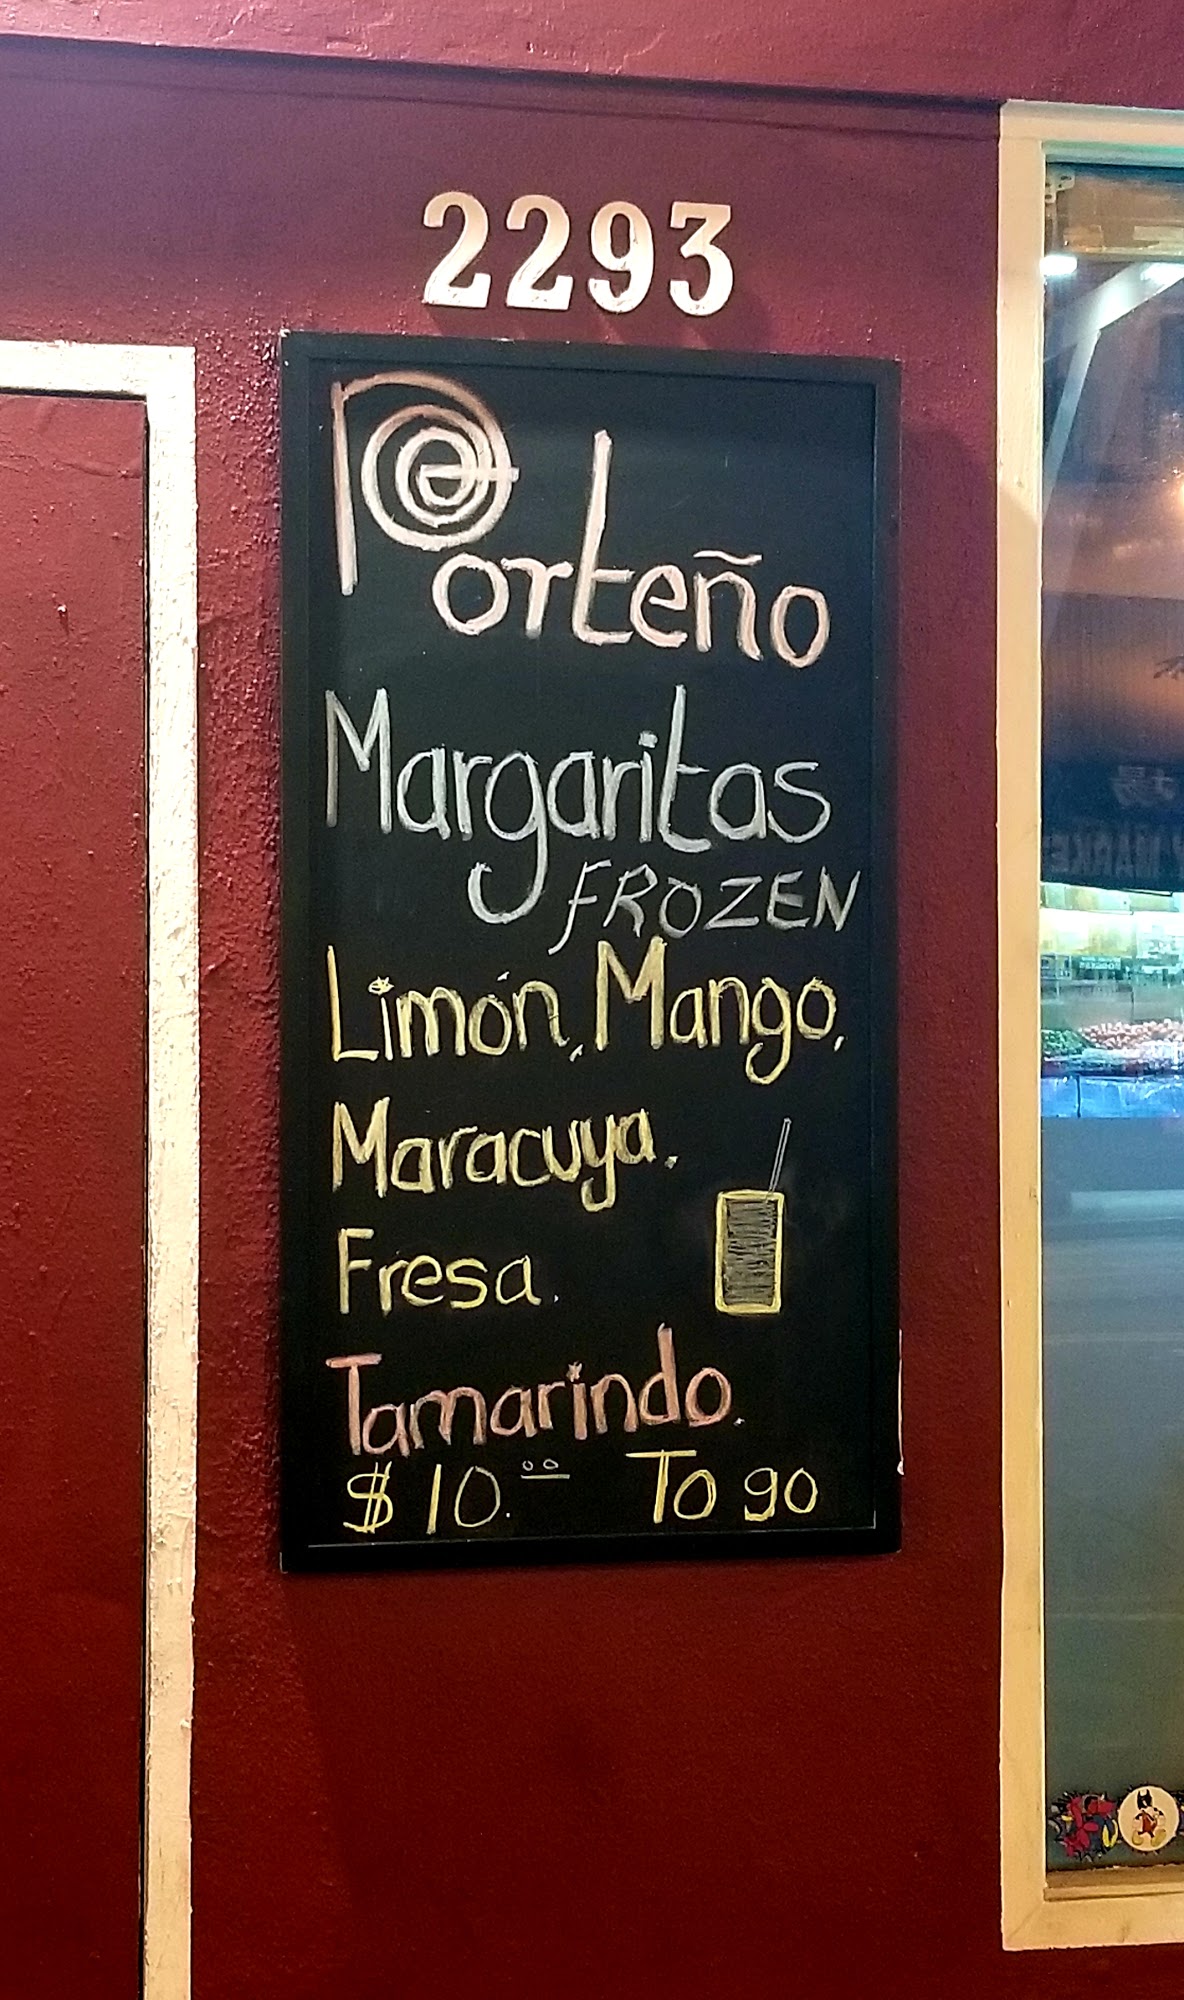 2293
Porteño
Margaritas
FROZEN
Limón, Mango,
Maracuya.
Fresa.
Tamarindo.
$10.00 To go
MARKE